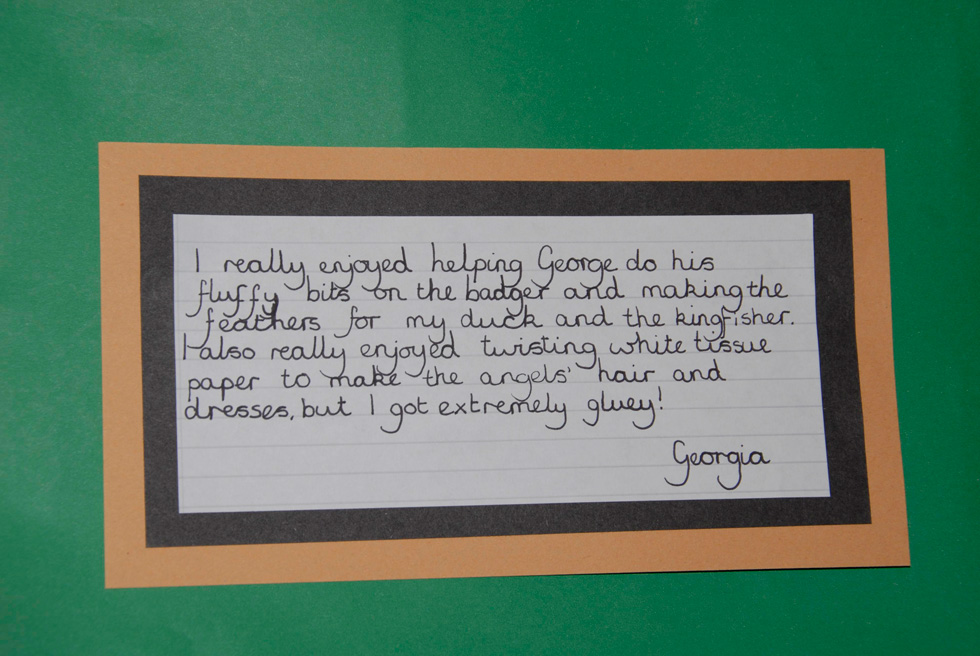 I really enjoyed helping George do his
fluffy bits on the badger and making the
feathers for my duck and the kingfisher.
I also really enjoyed twisting white tissue
paper to make the angels' hair and
dresses, but I got extremely gluey!
Georgia